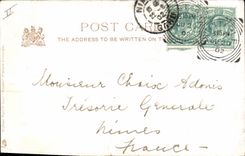 POST CARD
THE ADDRESS TO BE WRITTEN ON T
Monsieur Choix Adonis
Trésorie Generale
Nimes
France